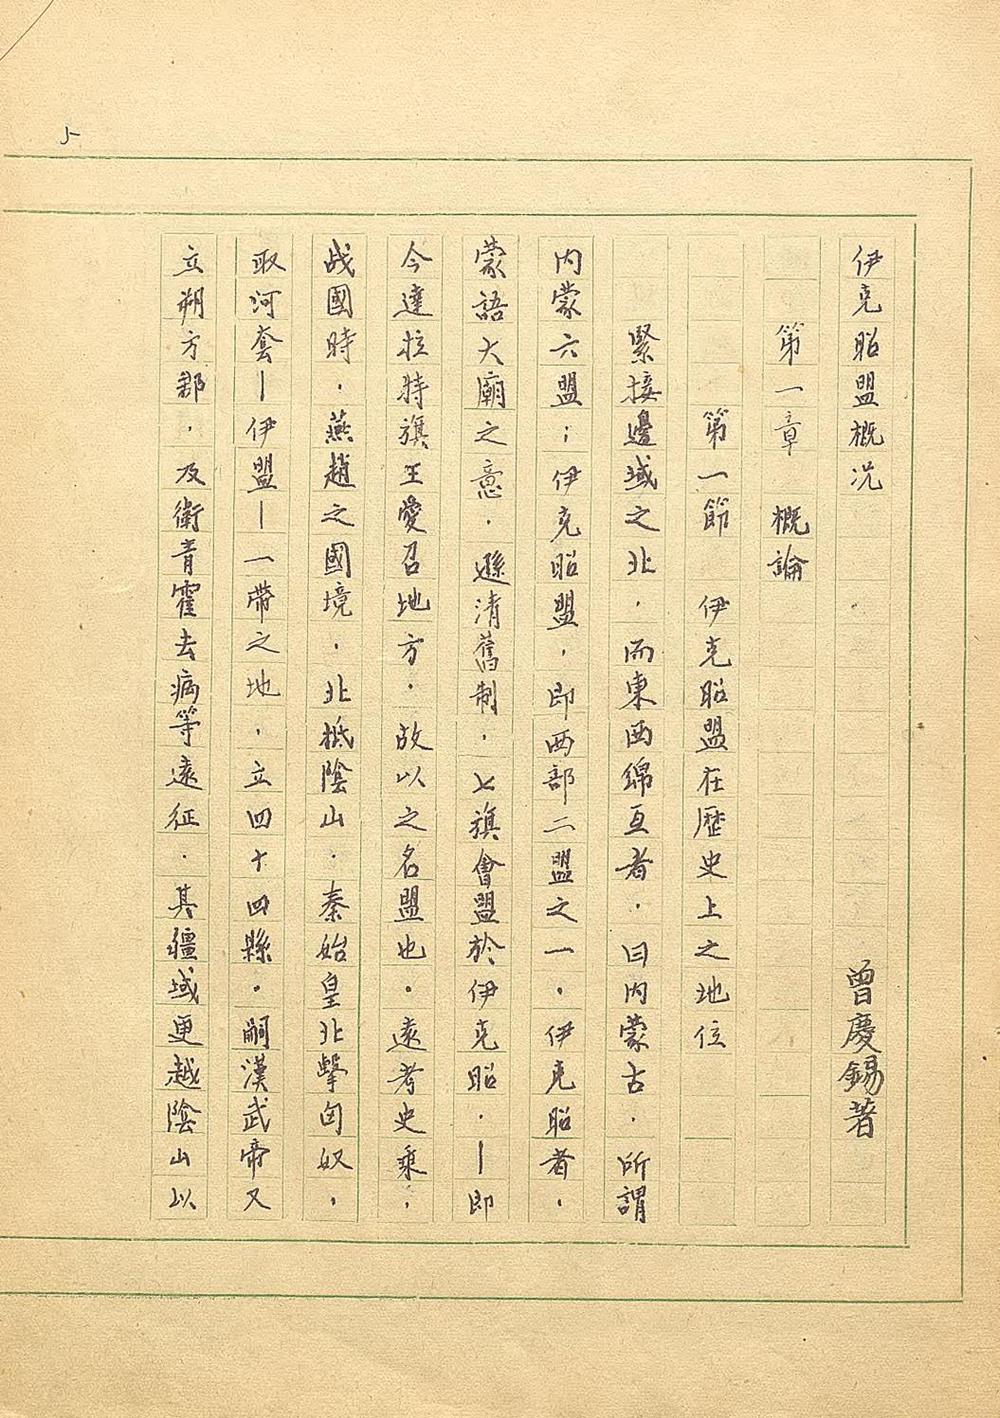 伊克昭盟概况 曾慶錫著
第一章 概論
第一節 伊克昭盟在歷史上之地位
緊接邊域之北，而東西綿亙者．曰內蒙古．所謂
內蒙六盟；伊克昭盟，即西部二盟之一．伊克昭者．
蒙語大廟之意．遜清舊制．七旗會盟於伊克昭．—即
今達拉特旗王愛召地方．故以之名盟也．遠者史乘；
战國時．燕趙之國境．北抵陰山．秦始皇北擊匈奴．
取河套—伊盟—一帶之地，立四十四縣．嗣漢武帝又
立朔方郡．及衛青霍去病等遠征．其疆域更越陰山以